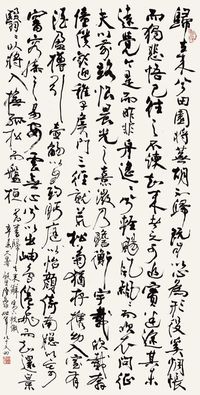 歸去來兮田園將蕪胡不歸既自以心為形役奚惆悵
而獨悲悟已往之不諫知來者之可追實迷途其未
遠覺今是而昨非舟遙遙以輕颺風飄飄而吹衣問征
夫以前路恨晨光之熹微乃瞻衡宇載欣載奔
僮僕歡迎稚子候門三徑就荒松菊猶存攜幼入室有
酒盈樽引壺觴以自酌眄庭柯以怡顏倚南窗以寄
審容膝之易安雲無心以出岫鳥倦飛而知還景
翳翳以將入撫孤松而盤桓